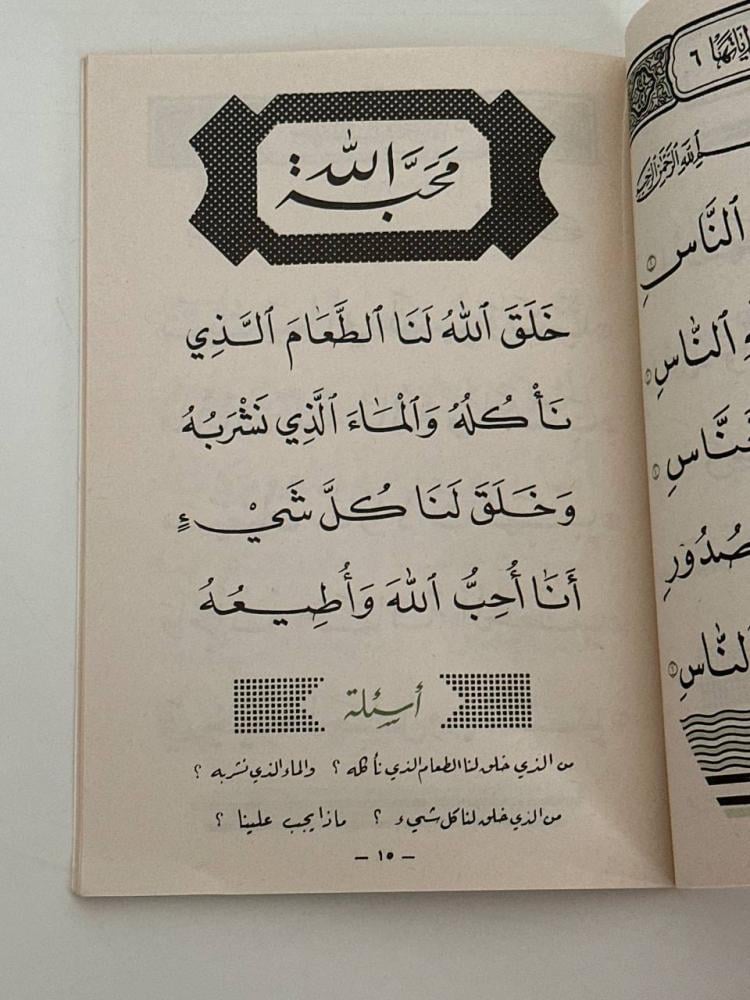 مَحَبَّة الله :
خَلَقَ ٱللهُ لَنَا ٱلطَّعَامَ ٱلَّذِي
نَأْكُلُهُ وَٱلْمَاءَ ٱلَّذِي نَشْرَبُهُ
وَخَلَقَ لَنَا كُلَّ شَيْءٍ
أَنَا أُحِبُّ ٱللهَ وَأُطِيعُهُ
أسئلة
من الذي خلق لنا الطعام الذي نأكله ؟ والماء الذي نشربه ؟
من الذي خلق لنا كل شيء ؟ ماذا يجب علينا ؟
— ١٥ —
٦
ٱلنَّاسِ
ٱلنَّاسِ
صُدُورِ